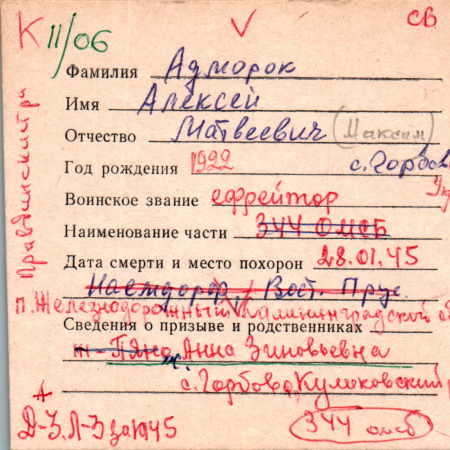 К 11/06
св
Фамилия Адморок
Имя Алексей
Отчество Матвеевич (Максим)
Год рождения 1922 с. Горбов
Воинское звание ефрейтор
Наименование части 344 ОМСБ
Дата смерти и место похорон 28.01.45
Вост. Прус.
п. Железнодорожный Калининградской об
Сведения о призыве и родственниках
ж. Анна Зиновьевна
с. Горбово, Куликовский р
Д-3. Л-3 за 1945
344 омсб
Правдинский р-